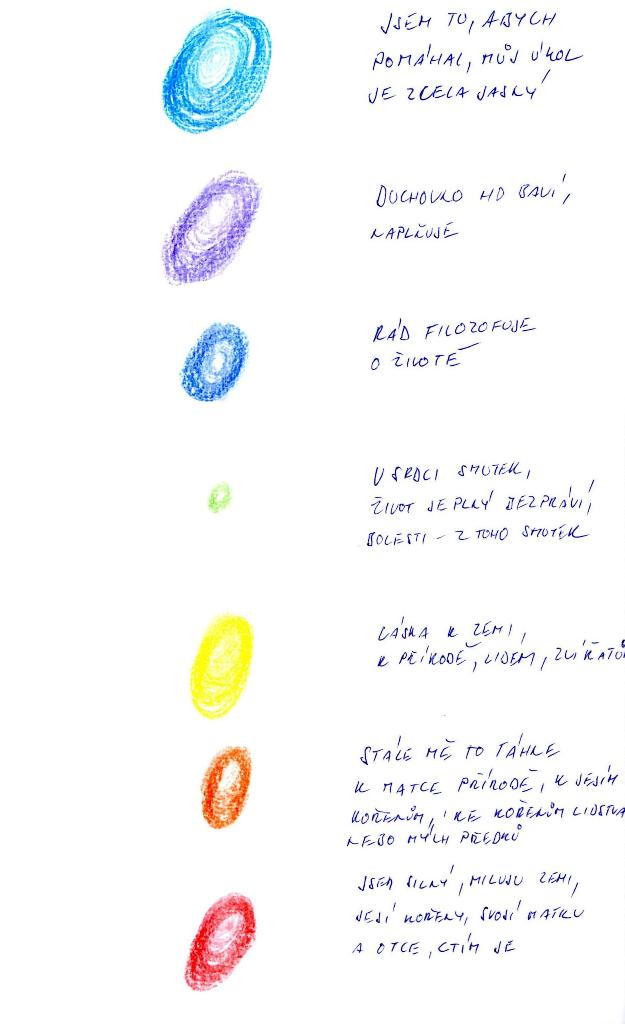 JSEM TU, ABYCH
POMÁHAL, MŮJ ÚKOL
JE ZCELA JASNÝ
DUCHOVNO MO BAVÍ,
NAPLŇUJE
RÁD FILOZOFUJE
O ŽIVOTĚ
V SRDCI SMUTEK,
ŽIVOT JE PLNÝ BEZPRÁVÍ,
BOLESTI - Z TOHO SMUTEK
LÁSKA K ZEMI,
K PŘÍRODĚ, LIDEM, ZVÍŘATŮM
STÁLE MĚ TO TÁHNE
K MATCE PŘÍRODĚ, K JEJÍM
KOŘENŮM, KE KOŘENŮM LIDSTVA
NEBO MÝCH PŘEDKŮ
JSEM SILNÝ, MILUJU ZEMI,
JEJÍ KOŘENY, SVOJÍ MATKU
A OTCE, CTÍM JE